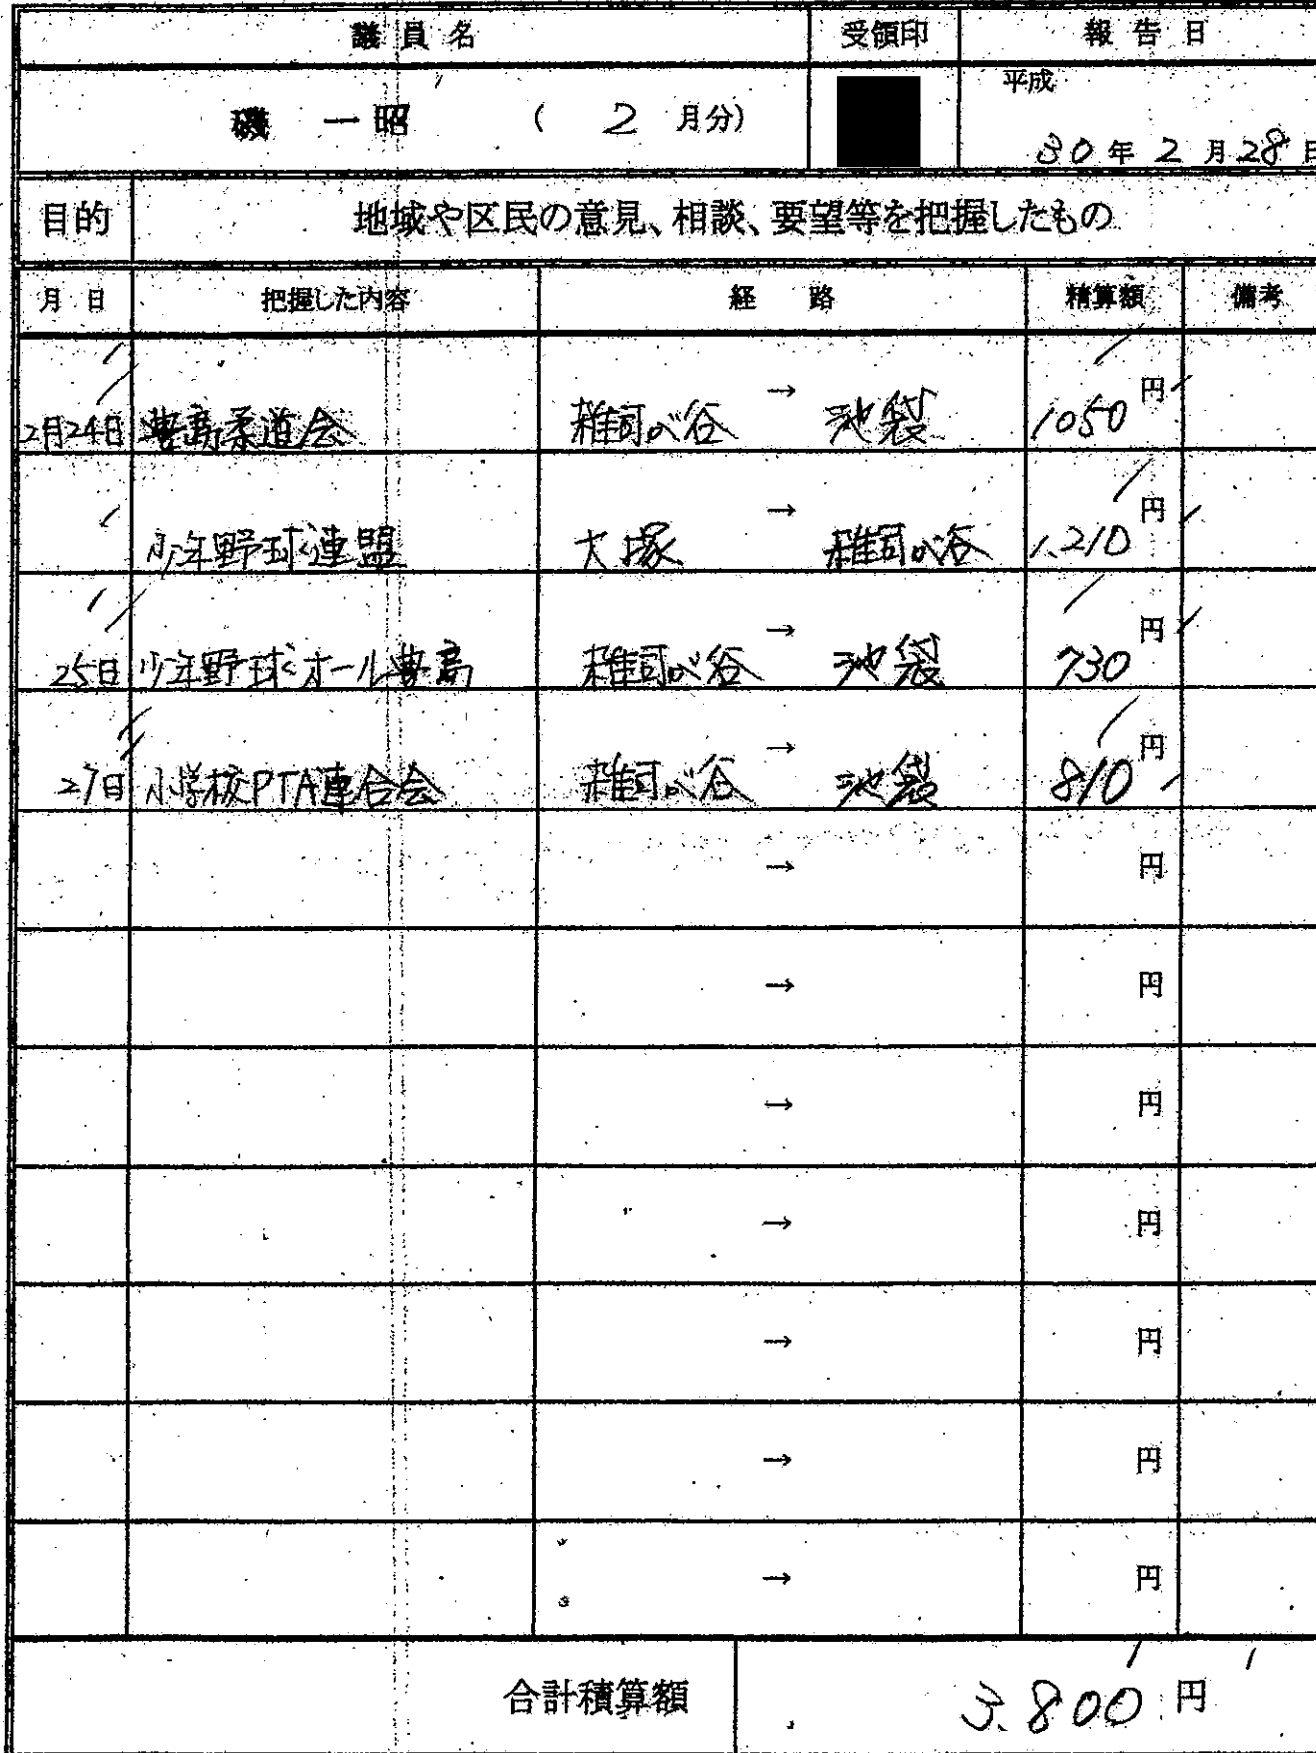 議員名 受領印 報告日
磯 一昭 ( 2 月分) 平成 30 年 2 月 28 日
目的 地域や区民の意見、相談、要望等を把握したもの
月 日 把握した内容 経 路 精算額 備考
2月24日 豊島柔道会 雑司が谷 → 池袋 1050 円
少年野球連盟 大塚 → 雑司が谷 1,210 円
25日 少年野球オール豊島 雑司が谷 → 池袋 730 円
27日 小学校PTA連合会 雑司が谷 → 池袋 810 円
→ 円
→ 円
→ 円
→ 円
→ 円
→ 円
→ 円
合計積算額 3.800 円